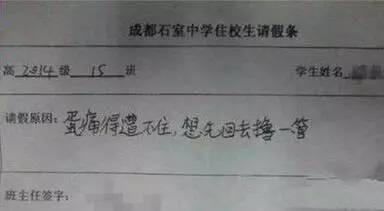 成都石室中学住校生请假条
高2014级15班 学生姓名
请假原因:蛋痛得遭不住,想先回去撸一管
班主任签字: